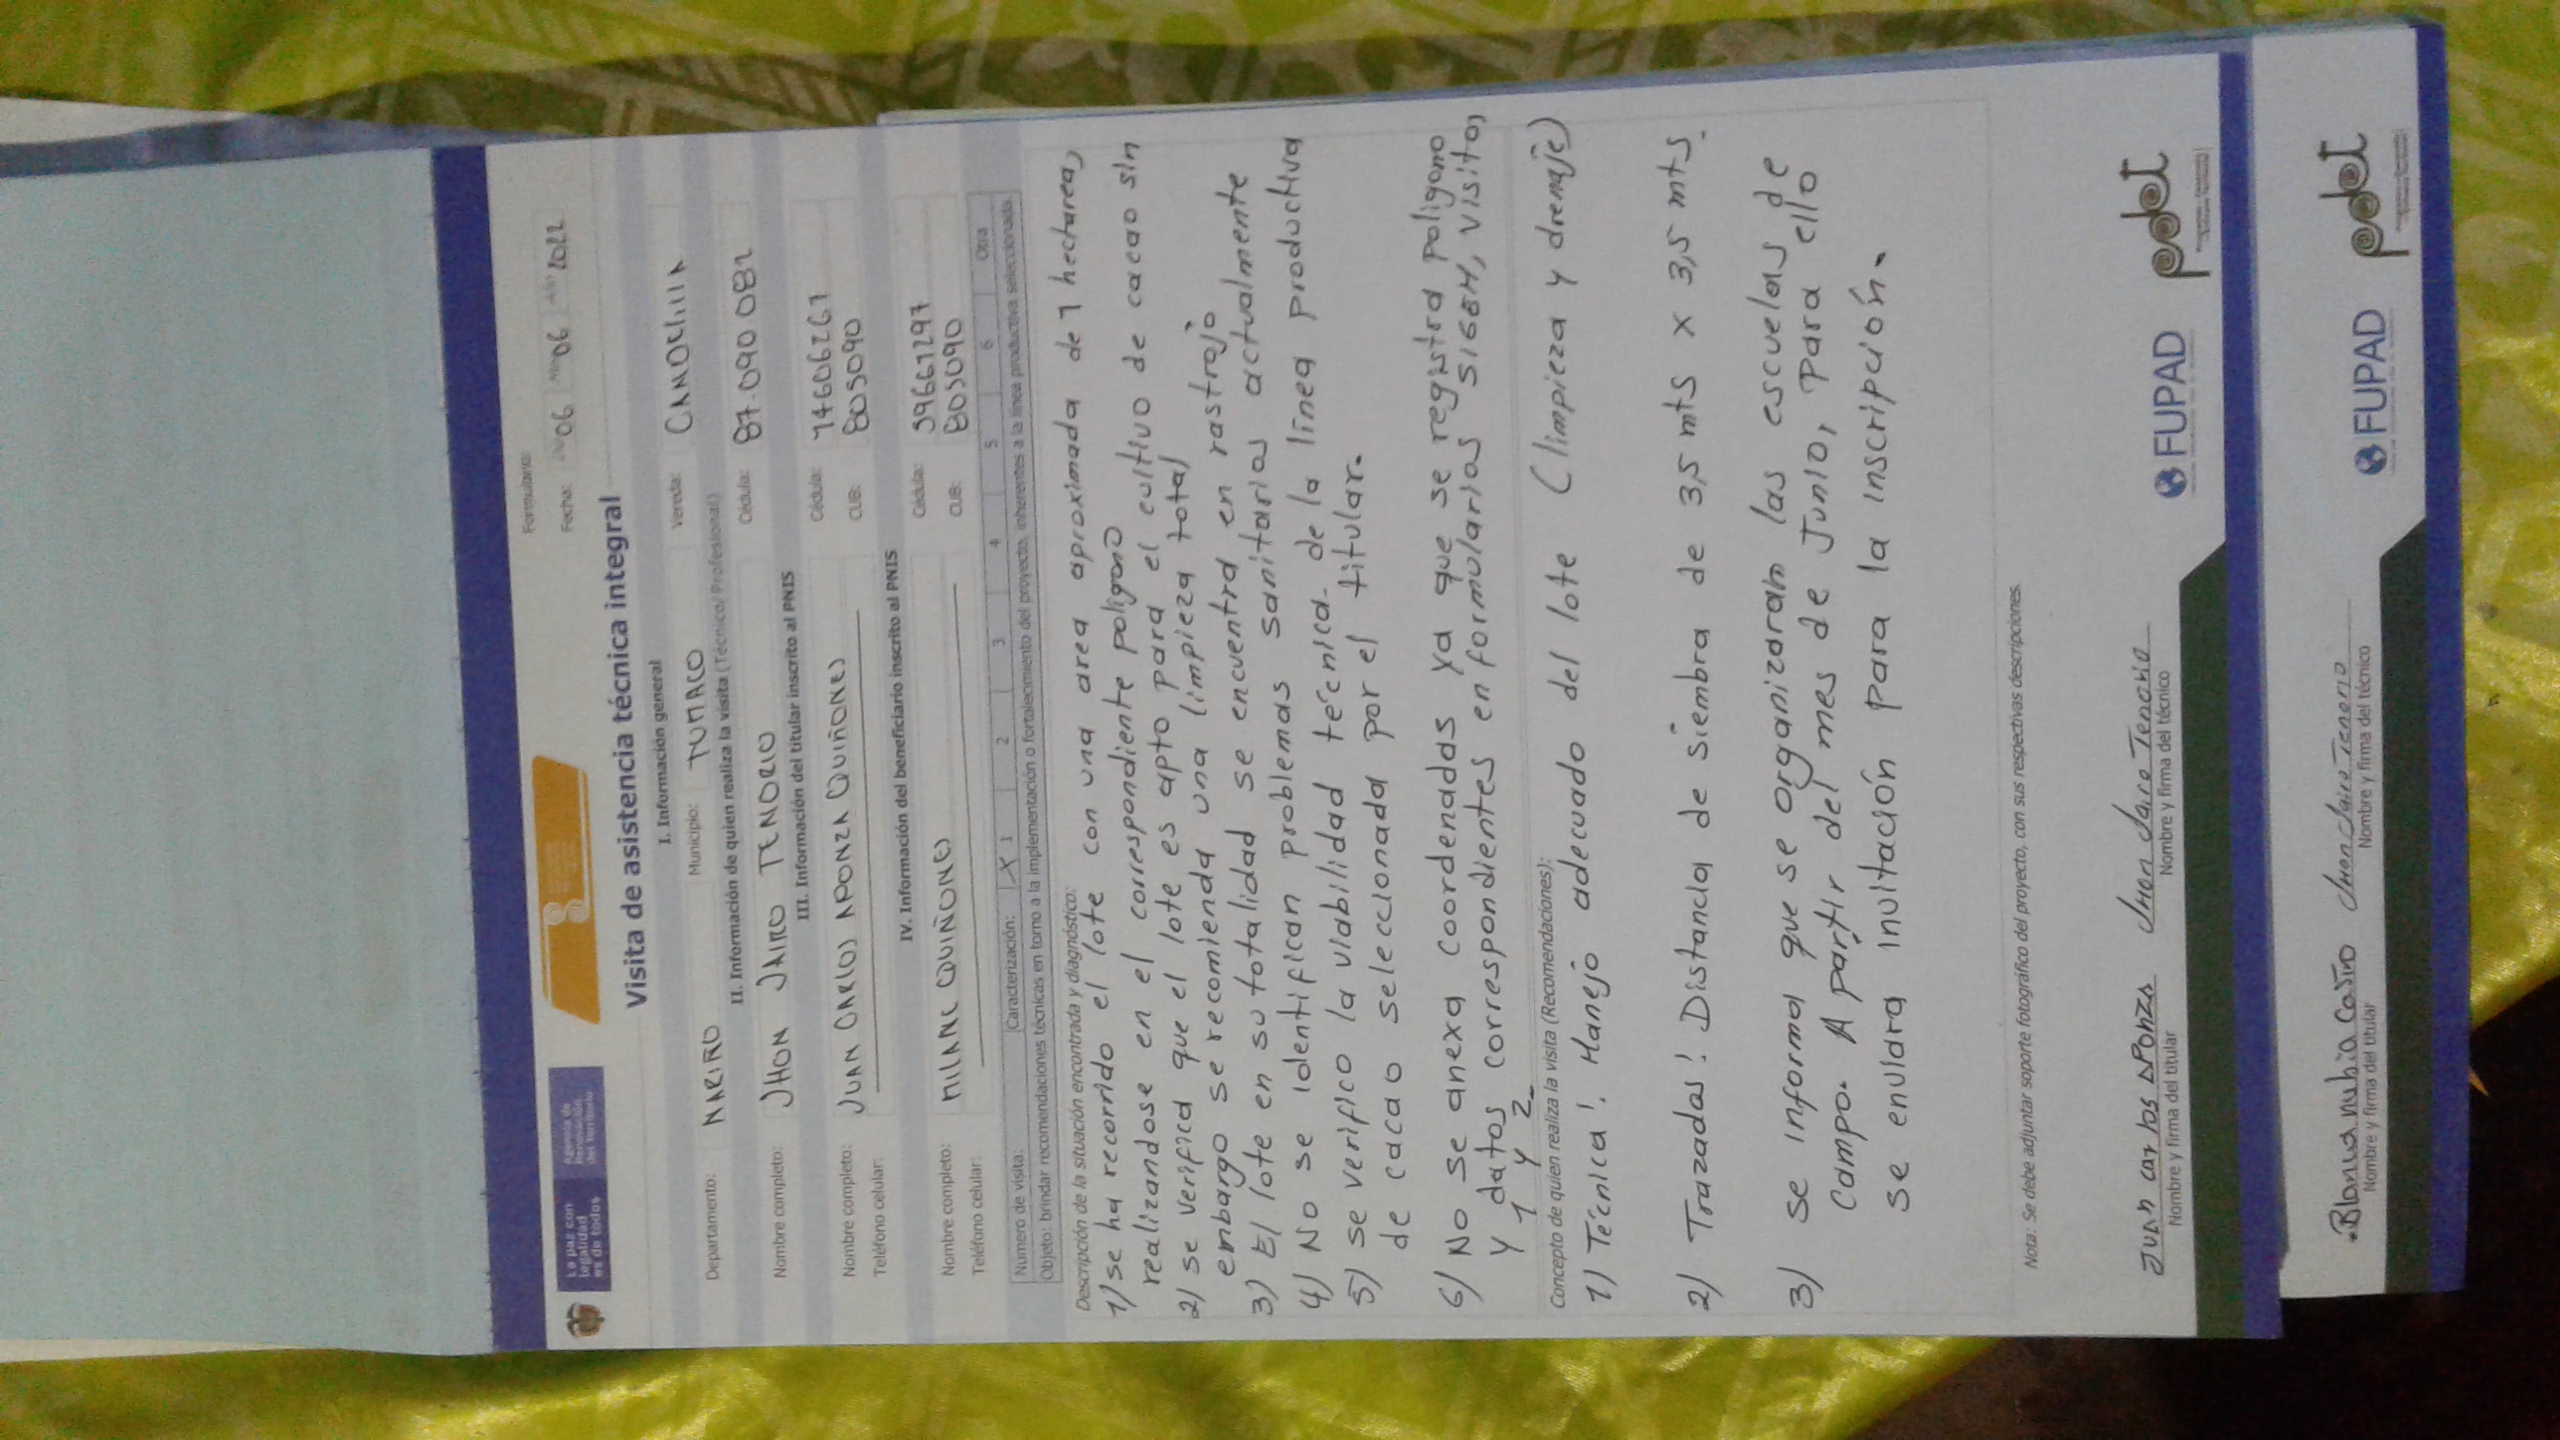 La paz con
legalidad
es de todos
Agencia de
Renovación
del Territorio
Formulario:
Fecha: Día 06 Mes 06 Año 2022
Visita de asistencia técnica integral
I. Información general
Departamento: NARIÑO Municipio: TUMACO Vereda:
II. Información de quien realiza la visita (Técnico/Profesional)
Nombre completo: JHON JAIRO TENORIO Cédula: 87.090 082
III. Información del titular inscrito al PNIS
Nombre completo: JUAN CARLOS APONZA QUIÑONES Cédula: 14606267
Teléfono celular: CUB: 805090
IV. Información del beneficiario inscrito al PNIS
Nombre completo: QUIÑONES Cédula: 59661297
Teléfono celular: CUB: 805090
Número de visita: Caracterización: X 1 2 3 4 5 6 Otra
Objeto: brindar recomendaciones técnicas en torno a la implementación o fortalecimiento del proyecto, inherentes a la línea productiva seleccionada.
Descripción de la situación encontrada y diagnóstico:
1) se ha recorrido el lote con una area aproximada de 1 hectarea,
realizandose en el correspondiente poligono
2) se verifica que el lote es apto para el cultivo de cacao sin
embargo se recomienda una limpieza total
3) El lote en su totalidad se encuentra en rastrojo
4) No se identifican problemas sanitarios actualmente
5) se verifico la viabilidad técnica de la línea productiva
de cacao seleccionada por el titular.
6) No se anexa coordenadas ya que se registra poligono
y datos correspondientes en formularios SIGEM, visita,
1 y 2
Concepto de quien realiza la visita (Recomendaciones):
1) Técnica! Manejo adecuado del lote (limpieza y drenaje)
2) Trazadas! Distancia de siembra de 3,5 mts x 3,5 mts.
3) se informa que se organizaran las escuelas de
campo. A partir del mes de Junio, Para ello
se enviara invitación para la inscripción.
Nota: Se debe adjuntar soporte fotográfico del proyecto, con sus respectivas descripciones.
JUAN carlos APONZA Jhon Jairo Tenorio
Nombre y firma del titular Nombre y firma del técnico
FUPAD pdet
Blanca nubia Castro Jhon Jairo Tenorio
Nombre y firma del titular Nombre y firma del técnico
FUPAD pdet